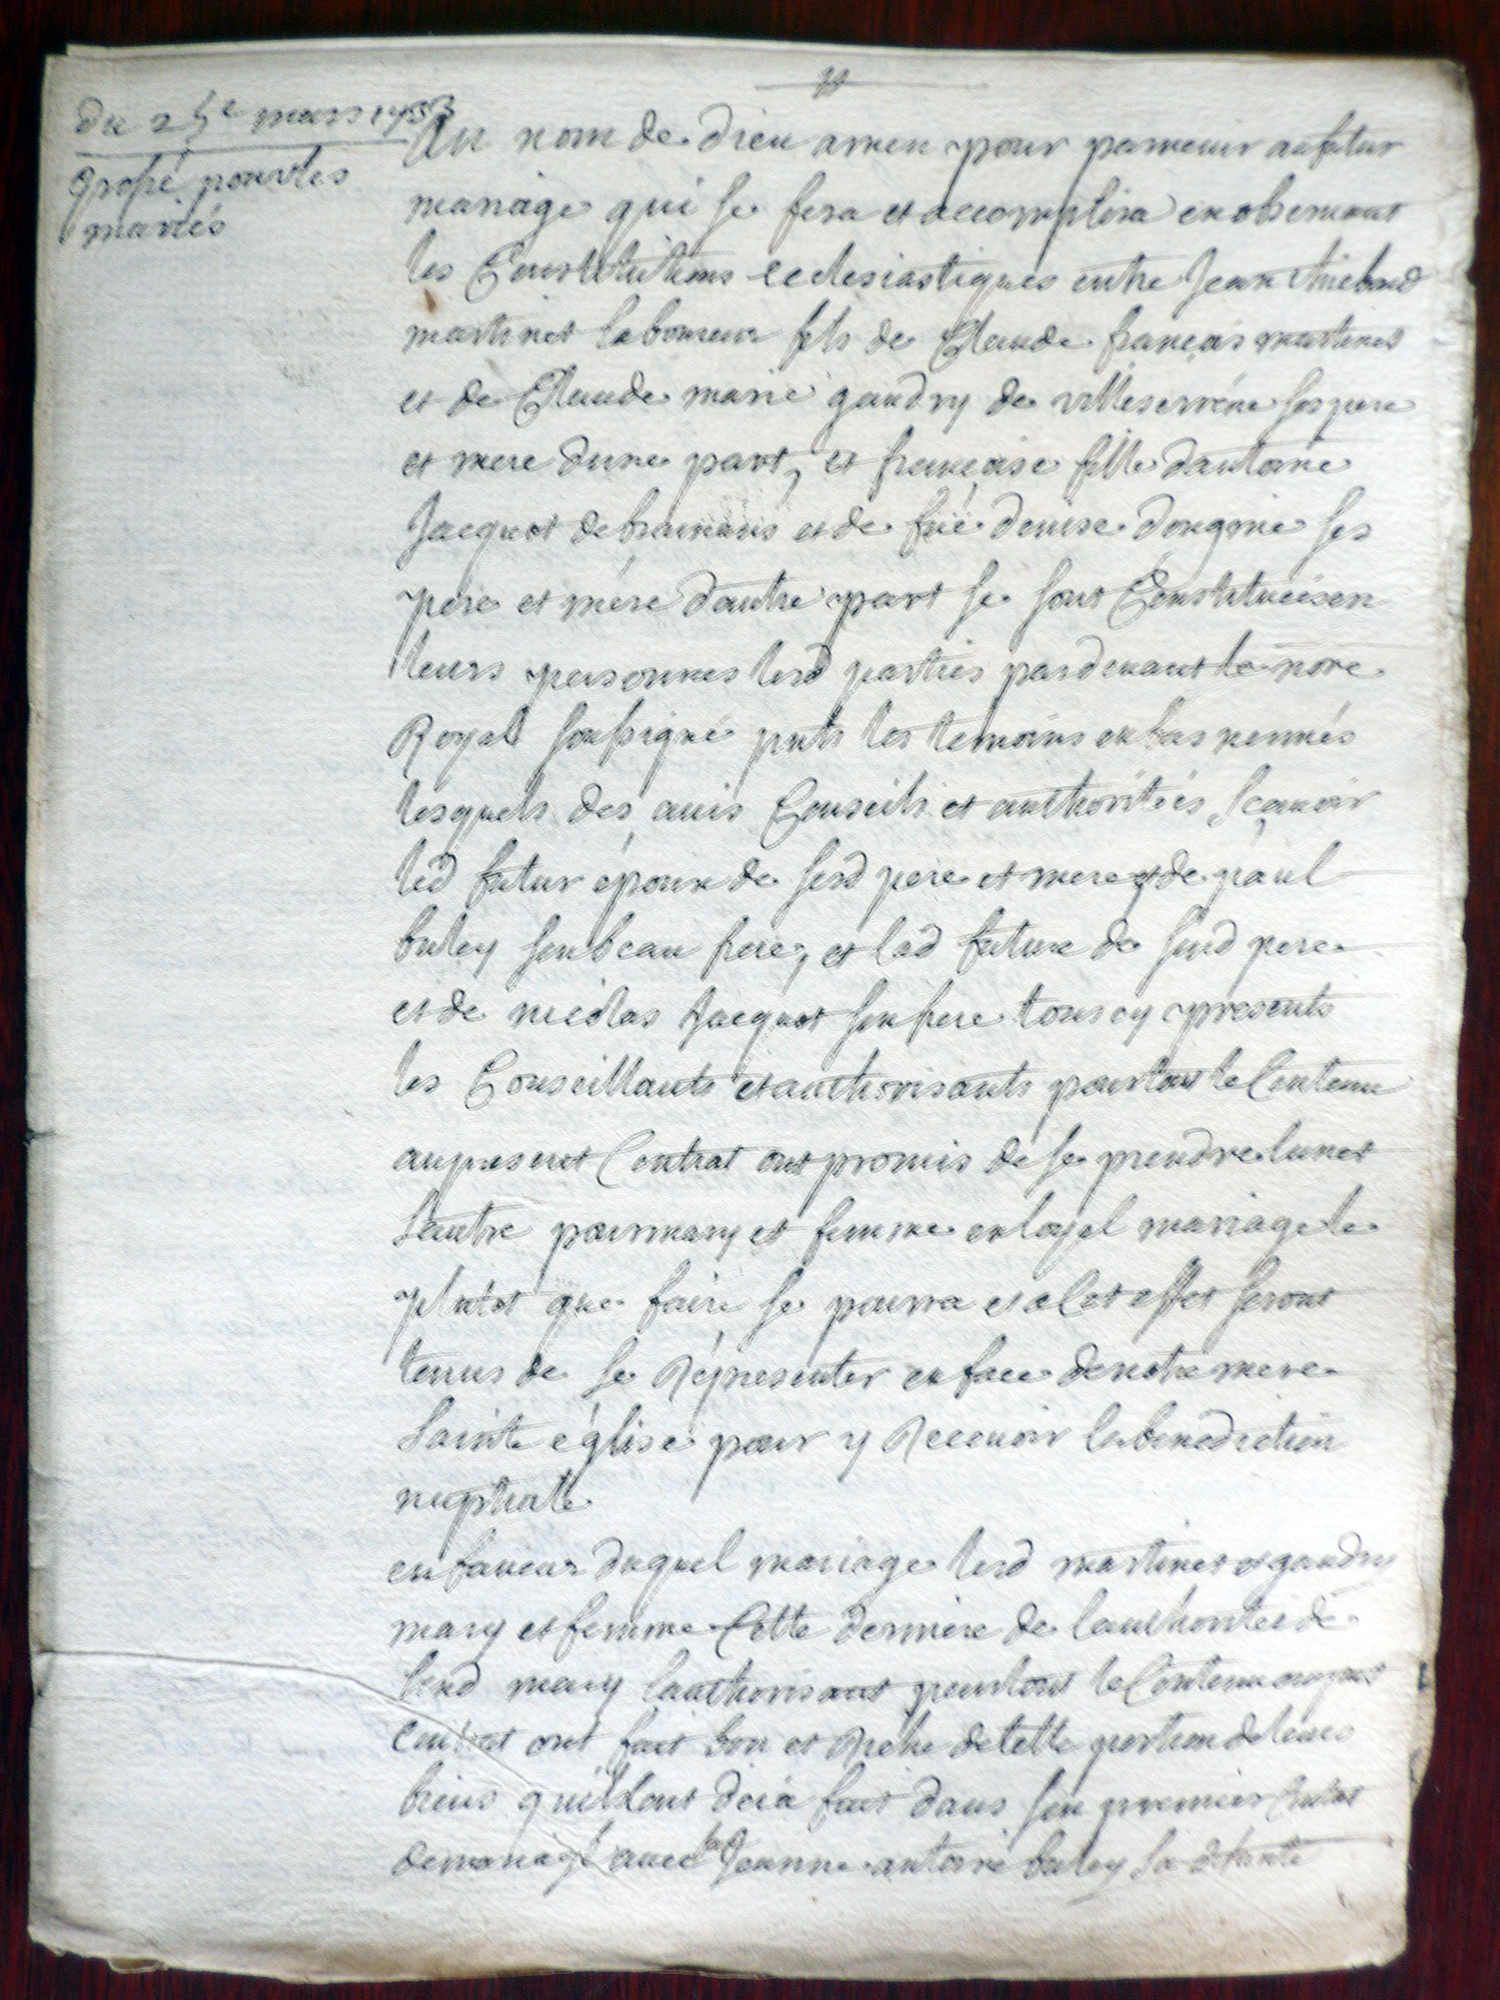 du 25e mars 1753
grosse pour les
mariés
Au nom de dieu amen pour parvenir au futur
mariage qui se fera et accomplira en observant
les Constitutions ecclesiastiques entre Jean thiebaud
martinet laboureur fils de Claude françois martinet
et de Claude marie gaudry de villesserrene ses pere
et mere dune part, et françoise fille dantoine
Jacquot de et de fue denise dougone ses
pere et mére dautre part se sont Constituées en
leurs personnes lesd parties pardevant le nore
Royal soussigné pnts les temoins en bas nommés
lesquels des avis Conseils et authoritées sçavoir
led futur époux de sesd pere et mere et de paul
buley son beau frere, et lad future de sond pere
et de nicolas Jacquot son frere tous cy presents
les Conseillants et authorisants pour tout le Contenu
au present Contrat ont promis de se prendre lun et
lautre pour mary et femme en loyal mariage le
plutot que faire se pourra et a Cet effet seront
tenus de se Répresenter en face de notre mere
Sainte église pour y Recevoir la benediction
nuptiale
en faveur duquel mariage lesd martinet et gaudry
mary et femme Cette derniere de lauthoritée de
sond mary lauthorisant pour tout le Contenu au pnt
Contrat ont fait bon et Riche de telle portion de leurs
biens quils ont deja fait dans son premier traité
de mariage avec lad Jeanne antoine buley sa défunte